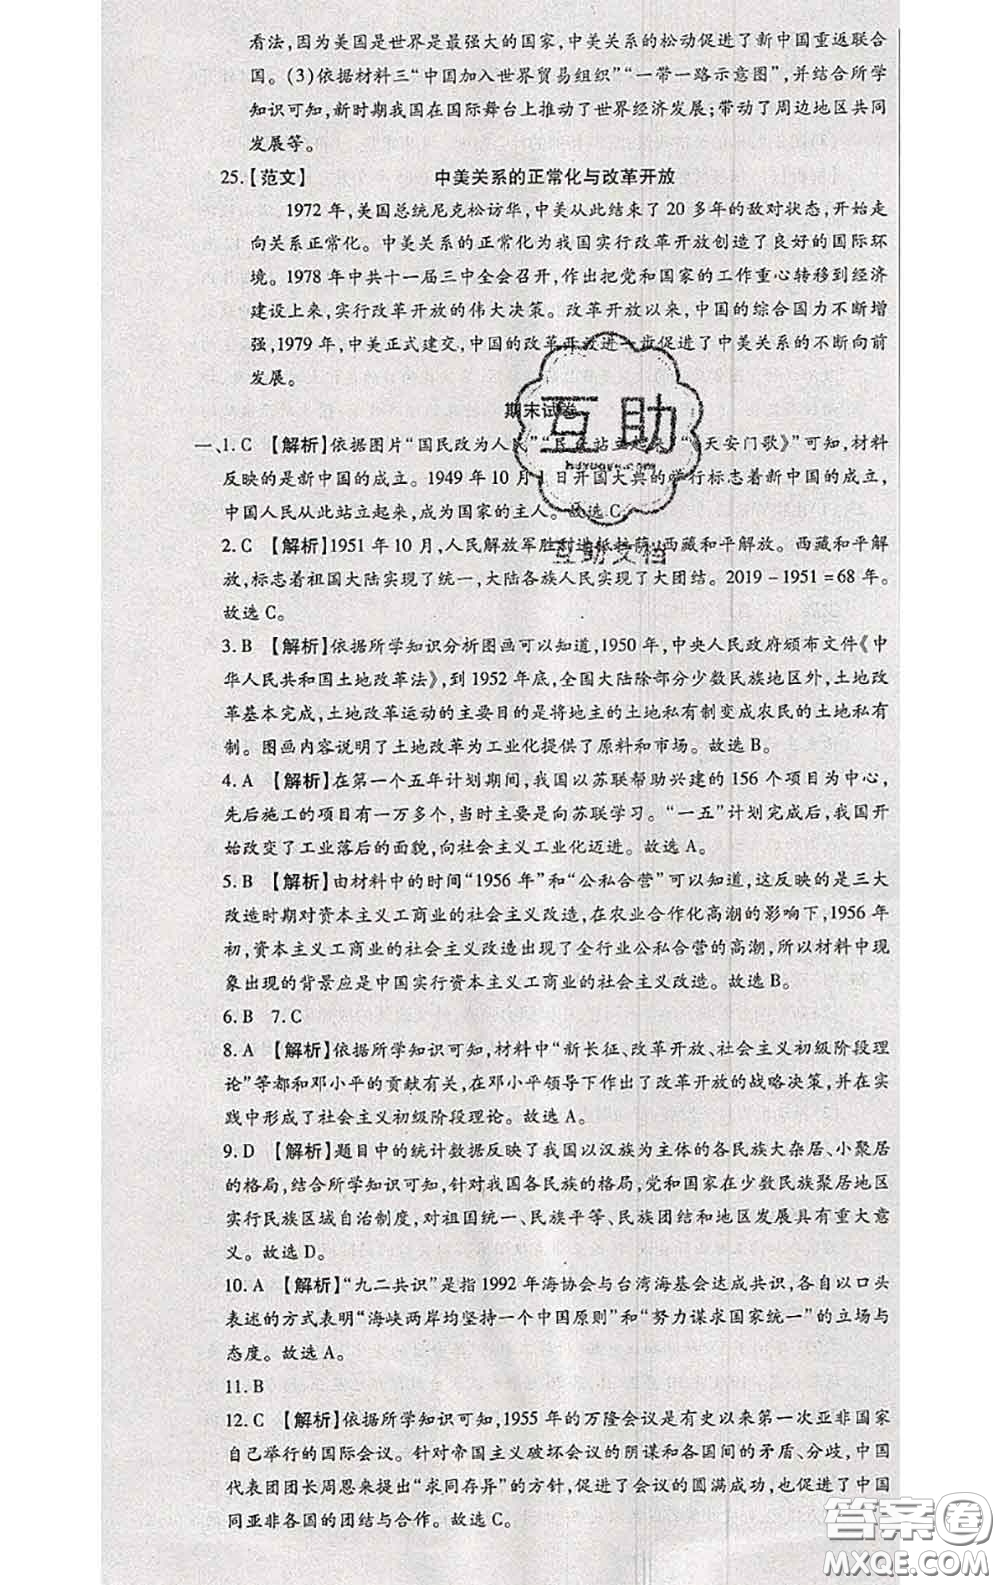 看法,因为美国是世界是最强大的国家,中美关系的松动促进了新中国重返联合
国。(3)依据材料三“中国加入世界贸易组织”“一带一路示意图”,并结合所学
知识可知,新时期我国在国际舞台上推动了世界经济发展;带动了周边地区共同
发展等。
25.【范文】 中美关系的正常化与改革开放
1972 年,美国总统尼克松访华,中美从此结束了 20 多年的敌对状态,开始走
向关系正常化。中美关系的正常化为我国实行改革开放创造了良好的国际环
境。1978 年中共十一届三中全会召开,作出把党和国家的工作重心转移到经济
建设上来,实行改革开放的伟大决策。改革开放以来,中国的综合国力不断增
强,1979 年,中美正式建交,中国的改革开放进一步促进了中美关系的不断向前
发展。
期末试卷
一、1. C 【解析】依据图片“国民改为人民”“ 站立起来”“ 天安门歌》”可知,材料
反映的是新中国的成立。1949 年 10 月 1 日开国大典的举行标志着新中国的成立,
中国人民从此站立起来,成为国家的主人。故选 C。
2. C 【解析】1951 年 10 月,人民解放军胜利进抵拉萨,西藏和平解放。西藏和平解
放,标志着祖国大陆实现了统一,大陆各族人民实现了大团结。2019 - 1951 = 68 年。
故选 C。
3. B 【解析】依据所学知识分析图画可以知道,1950 年,中央人民政府颁布文件《中
华人民共和国土地改革法》,到 1952 年底,全国大陆除部分少数民族地区外,土地改
革基本完成,土地改革运动的主要目的是将地主的土地私有制变成农民的土地私有
制。图画内容说明了土地改革为工业化提供了原料和市场。故选 B。
4. A 【解析】在第一个五年计划期间,我国以苏联帮助兴建的 156 个项目为中心,
先后施工的项目有一万多个,当时主要是向苏联学习。“一五”计划完成后,我国开
始改变了工业落后的面貌,向社会主义工业化迈进。故选 A。
5. B 【解析】由材料中的时间“1956 年”和“公私合营”可以知道,这反映的是三大
改造时期对资本主义工商业的社会主义改造,在农业合作化高潮的影响下,1956 年
初,资本主义工商业的社会主义改造出现了全行业公私合营的高潮,所以材料中现
象出现的背景应是中国实行资本主义工商业的社会主义改造。故选 B。
6. B 7. C
8. A 【解析】依据所学知识可知,材料中“新长征、改革开放、社会主义初级阶段理
论”等都和邓小平的贡献有关,在邓小平领导下作出了改革开放的战略决策,并在实
践中形成了社会主义初级阶段理论。故选 A。
9. D 【解析】题目中的统计数据反映了我国以汉族为主体的各民族大杂居、小聚居
的格局,结合所学知识可知,针对我国各民族的格局,党和国家在少数民族聚居地区
实行民族区域自治制度,对祖国统一、民族平等、民族团结和地区发展具有重大意
义。故选 D。
10. A 【解析】“九二共识”是指 1992 年海协会与台湾海基会达成共识,各自以口头
表述的方式表明“海峡两岸均坚持一个中国原则”和“努力谋求国家统一”的立场与
态度。故选 A。
11. B
12. C 【解析】依据所学知识可知,1955 年的万隆会议是有史以来第一次亚非国家
自己举行的国际会议。针对帝国主义破坏会议的阴谋和各国间的矛盾、分歧,中国
代表团团长周恩来提出“求同存异”的方针,促进了会议的圆满成功,也促进了中国
同亚非各国的团结与合作。故选 C。
互助
互助文档
答案圈
MXQE.COM